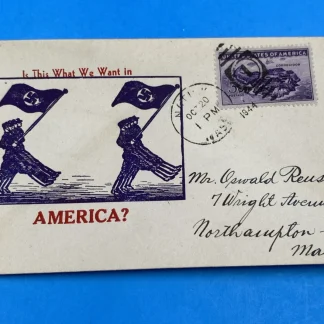 Is This What We Want in
AMERICA?
UNITED STATES OF AMERICA
OC 20
1 PM
1944
MASS
Mr. Oswald Reus
7 Wright Avenu
Northampton -
Ma